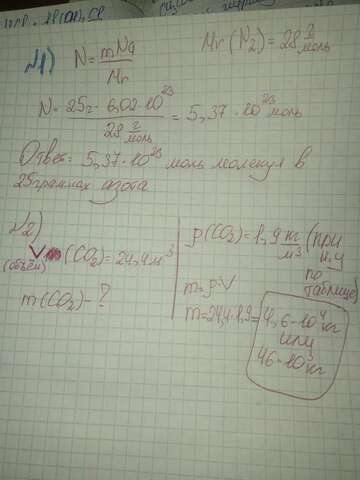 №1) N = mNa / Mr
Mr (N₂) = 28 г/моль
N = 25г · 6,02·10²³ / 28 г/моль = 5,37·10²³ моль
Ответ: 5,37·10²³ моль молекул в
25 граммах азота
№2)
V (CO₂) = 24,4 м³
(объём)
m (CO₂) - ?
ρ(CO₂) = 1,9 кг/м³ (при
н.у
по
таблице)
m = ρ·V
m = 24,4·1,9 = 4,6·10⁴
или
46·10³ кг